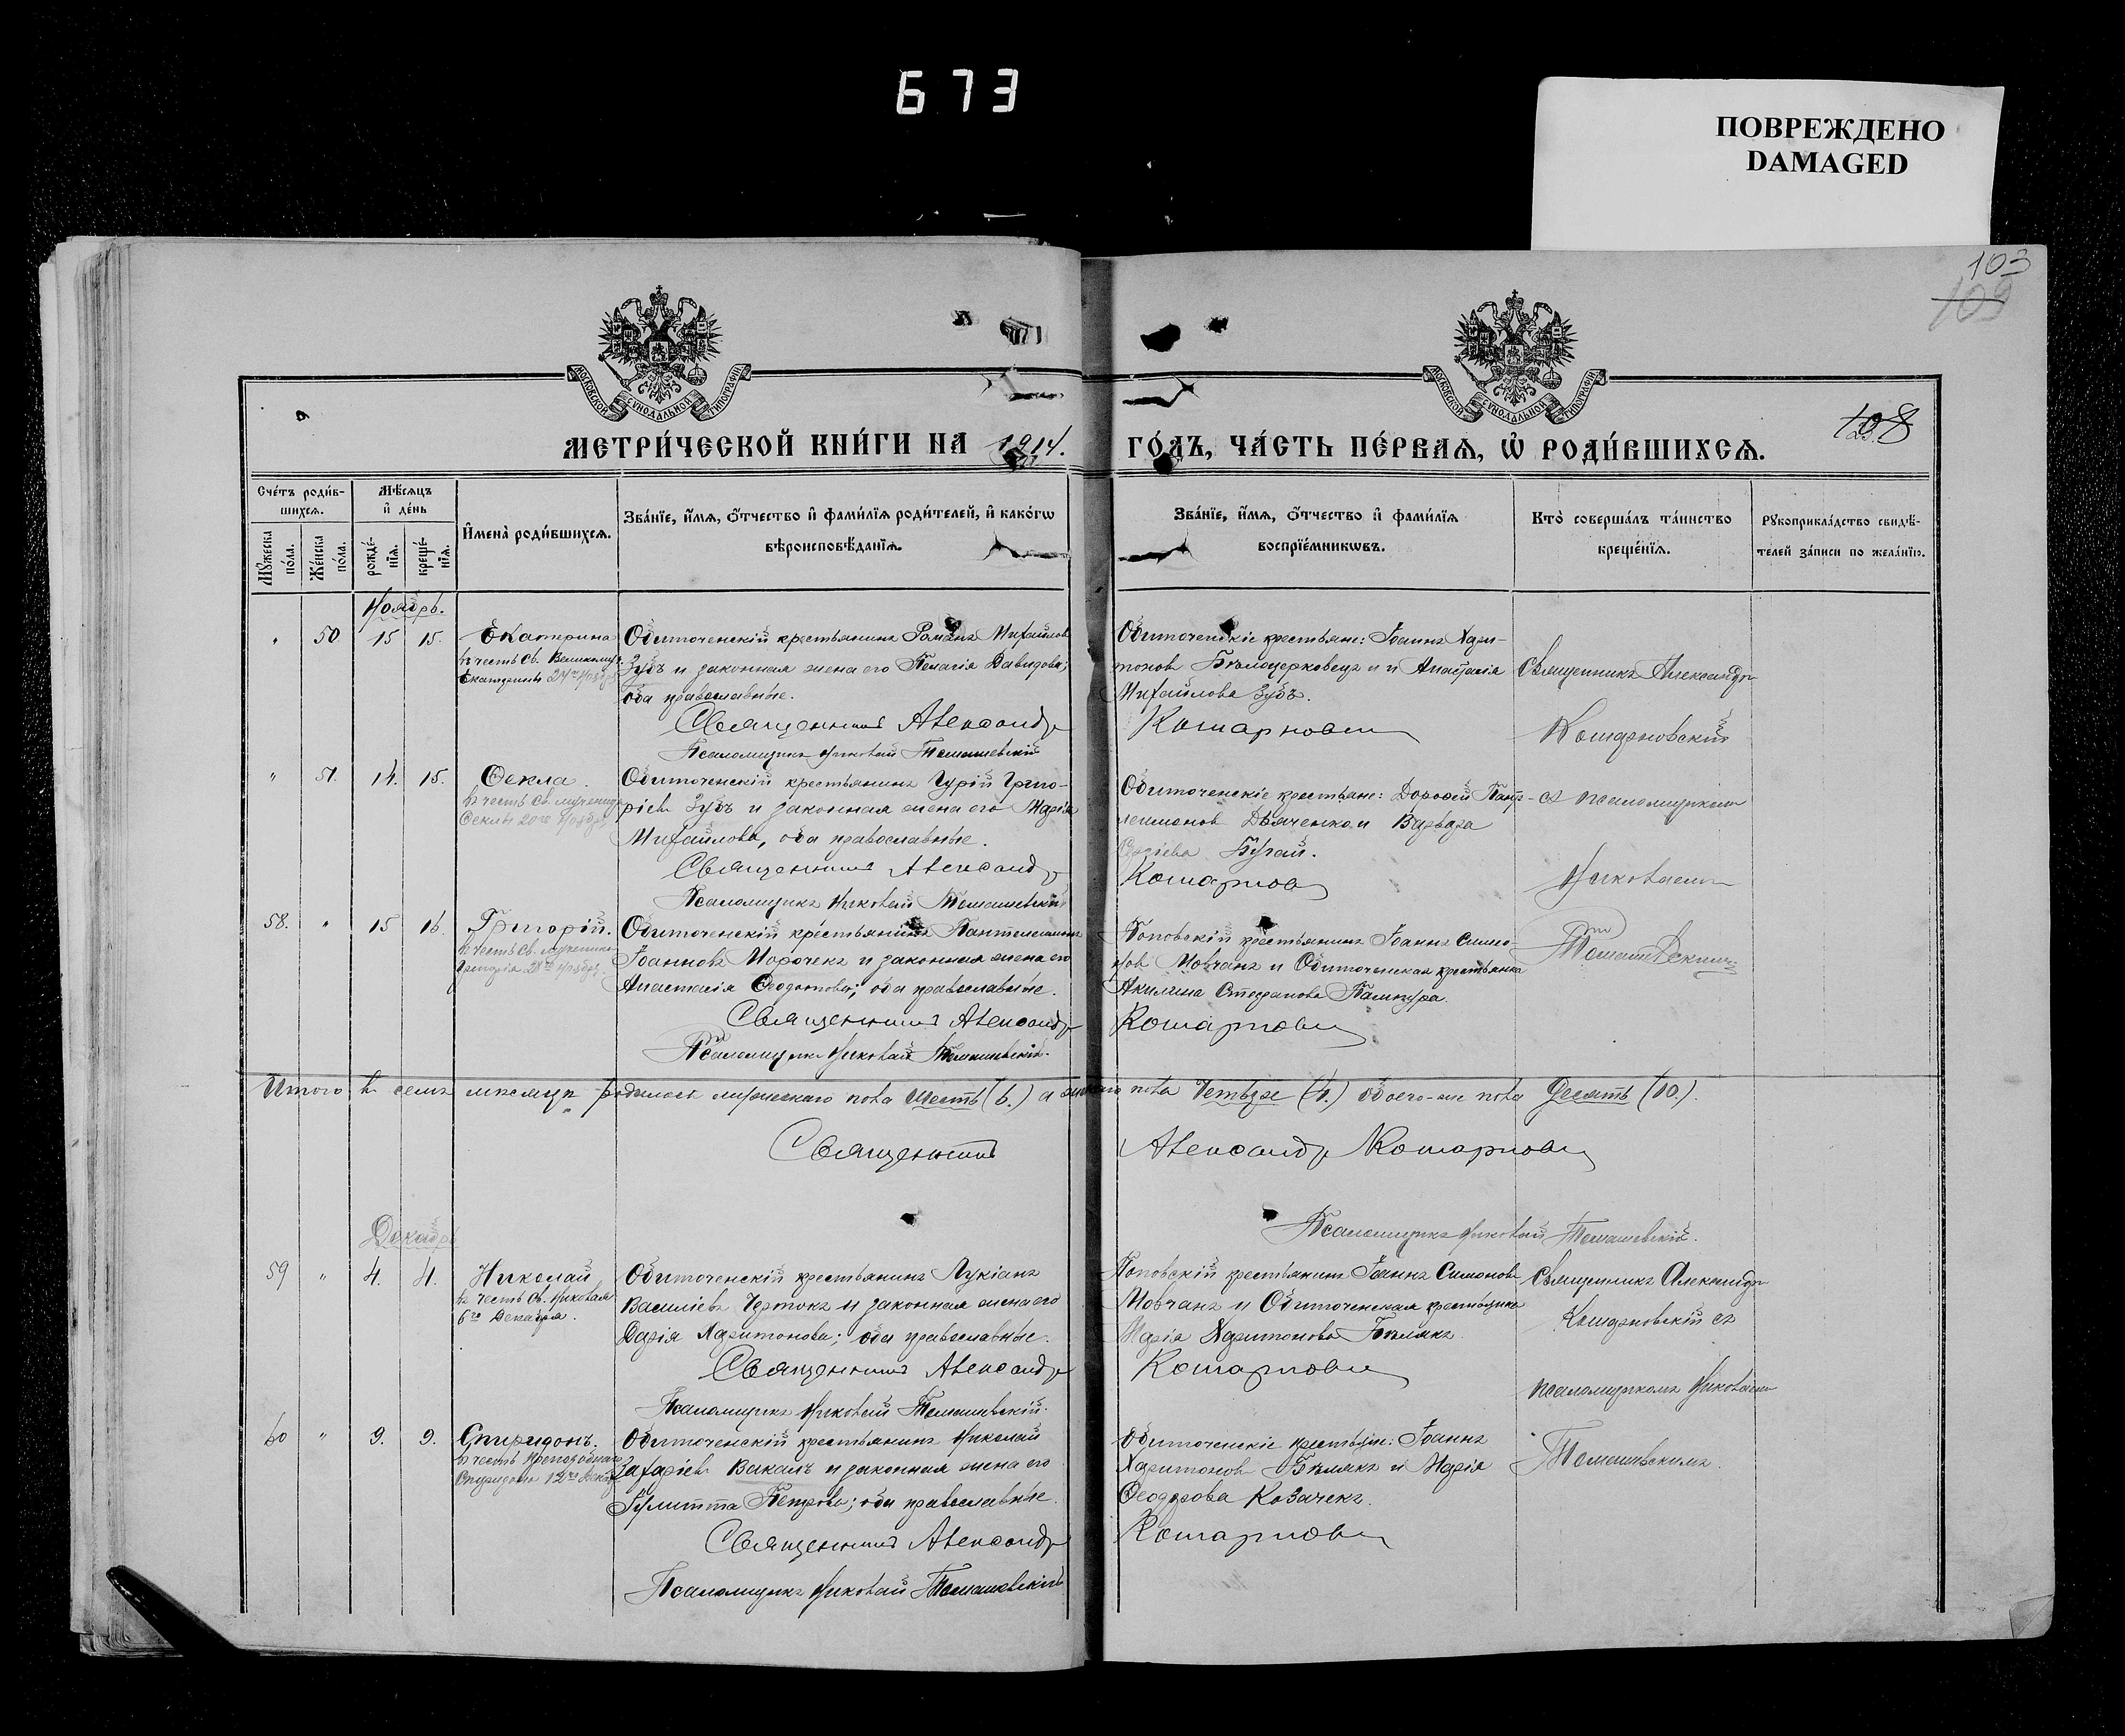 673
ПОВРЕЖДЕНО
DAMAGED
103
109
108
МОСКОВСКОЙ СѴНОДАЛЬНОЙ ТИПОГРАФІИ
МОСКОВСКОЙ СѴНОДАЛЬНОЙ ТИПОГРАФІИ
МЕТРИ́ЧЕСКОЙ КНИ́ГИ НА 1914. ГО́ДЪ, ЧА́СТЬ ПЕ́РВАѦ, Ѡ҆ РОДИ́ВШИХСѦ.
Сче́тъ роди́в-
шихсѧ.
Мѣ́сѧцъ
и҆ де́нь
Мꙋ́жеска по́ла.
Же́нска по́ла.
рожде́-
нїѧ.
креще́-
нїѧ.
И҆мена̀ роди́вшихсѧ.
Зва́нїе, и҆́мѧ, ѻ҆́тчество и҆ фами́лїѧ роди́телей, и҆ како́гѡ
вѣроисповѣ́данїѧ.
Зва́нїе, и҆́мѧ, ѻ҆́тчество и҆ фами́лїѧ
воспрїе́мникѡвъ.
Кто̀ соверша́лъ та́инство
креще́нїѧ.
Рꙋкоприкла́дство свидѣ́-
телей за́писи по жела́нїю.
Ноябрь.
" 50 15 15. Екатерина
въ честь св. Великомуч.
Екатерины 24го Ноября
Обиточенскій крестьянинъ Романъ Михайловъ
Зубъ и законная жена его Пелагія Давидова;
оба православные.
Священникъ Александр
Псаломщикъ Николай Томашевскій
Обиточенскіе крестьяне: Іоаннъ Хари-
тоновъ Бѣлоцерковецъ и Анастасія
Михайлова Зубъ.
Кошарновски
Священникъ Александръ
Кошарновскій
" 51. 14. 15. Ѳекла.
въ честь св. мученицы
Ѳеклы 20го Ноября
Обиточенскій крестьянинъ Гурій Григо-
ріевъ Зубъ и законная жена его Марія
Михайлова, оба православные.
Священникъ Александр
Псаломщикъ Николай Томашевскій
Обиточенскіе крестьяне: Дороѳей Пант-
елимоновъ Дьяченко и Варвара
Бугай.
Кошарнов
съ псаломщикомъ
Николаемъ
58. " 15 16. Григорій.
въ честь св. мученика
Григорія 28го Ноября.
Обиточенскій крестьянинъ Пантелеимонъ
Іоанновъ Морочекъ и законная жена его
Анастасія Ѳеодотова; оба православные.
Священникъ Александр
Псаломщикъ Николай Томашевскій.
Поповскій крестьянинъ Іоаннъ Симео-
новъ Мовчанъ и Обиточенская крестьянка
Акилина Стефанова Палитура.
Кошарновски
Томашевскимъ
Итого въ семъ мѣсяцѣ родилось мужескаго пола Шесть (6.) а женскаго пола Четыре (4.) обоего-же пола Десять (10.).
Священникъ Александр Кошарновски
Псаломщикъ Николай Томашевскій.
Декабрь
59 " 4. 4. Николай
въ честь св. Николая
6го Декабря.
Обиточенскій крестьянинъ Лукіанъ
Василіевъ Чертокъ и законная жена его
Дарія Харитонова; оба православные.
Священникъ Александр
Псаломщикъ Николай Томашевскій.
Поповскій крестьянинъ Іоаннъ Симоновъ
Мовчанъ и Обиточенская крестьянка
Марія Харитонова Бѣлякъ.
Кошарновски
Священникъ Александръ
Кошарновскій съ
псаломщикомъ Николаемъ
60 " 9. 9. Спиридонъ.
въ честь преподобнаго
Спиридона 12го Декаб.
Обиточенскій крестьянинъ Николай
Захаріевъ Вакалъ и законная жена его
Іулитта Петрова; оба православные.
Священникъ Александр
Псаломщикъ Николай Томашевскій
Обиточенскіе крестьяне: Іоаннъ
Харитоновъ Бѣлякъ и Марія
Ѳеодорова Козачекъ.
Кошарновски
Томашевскимъ.